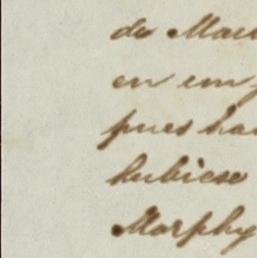 de Mac
en un
pues ha
hubiese
Morphy